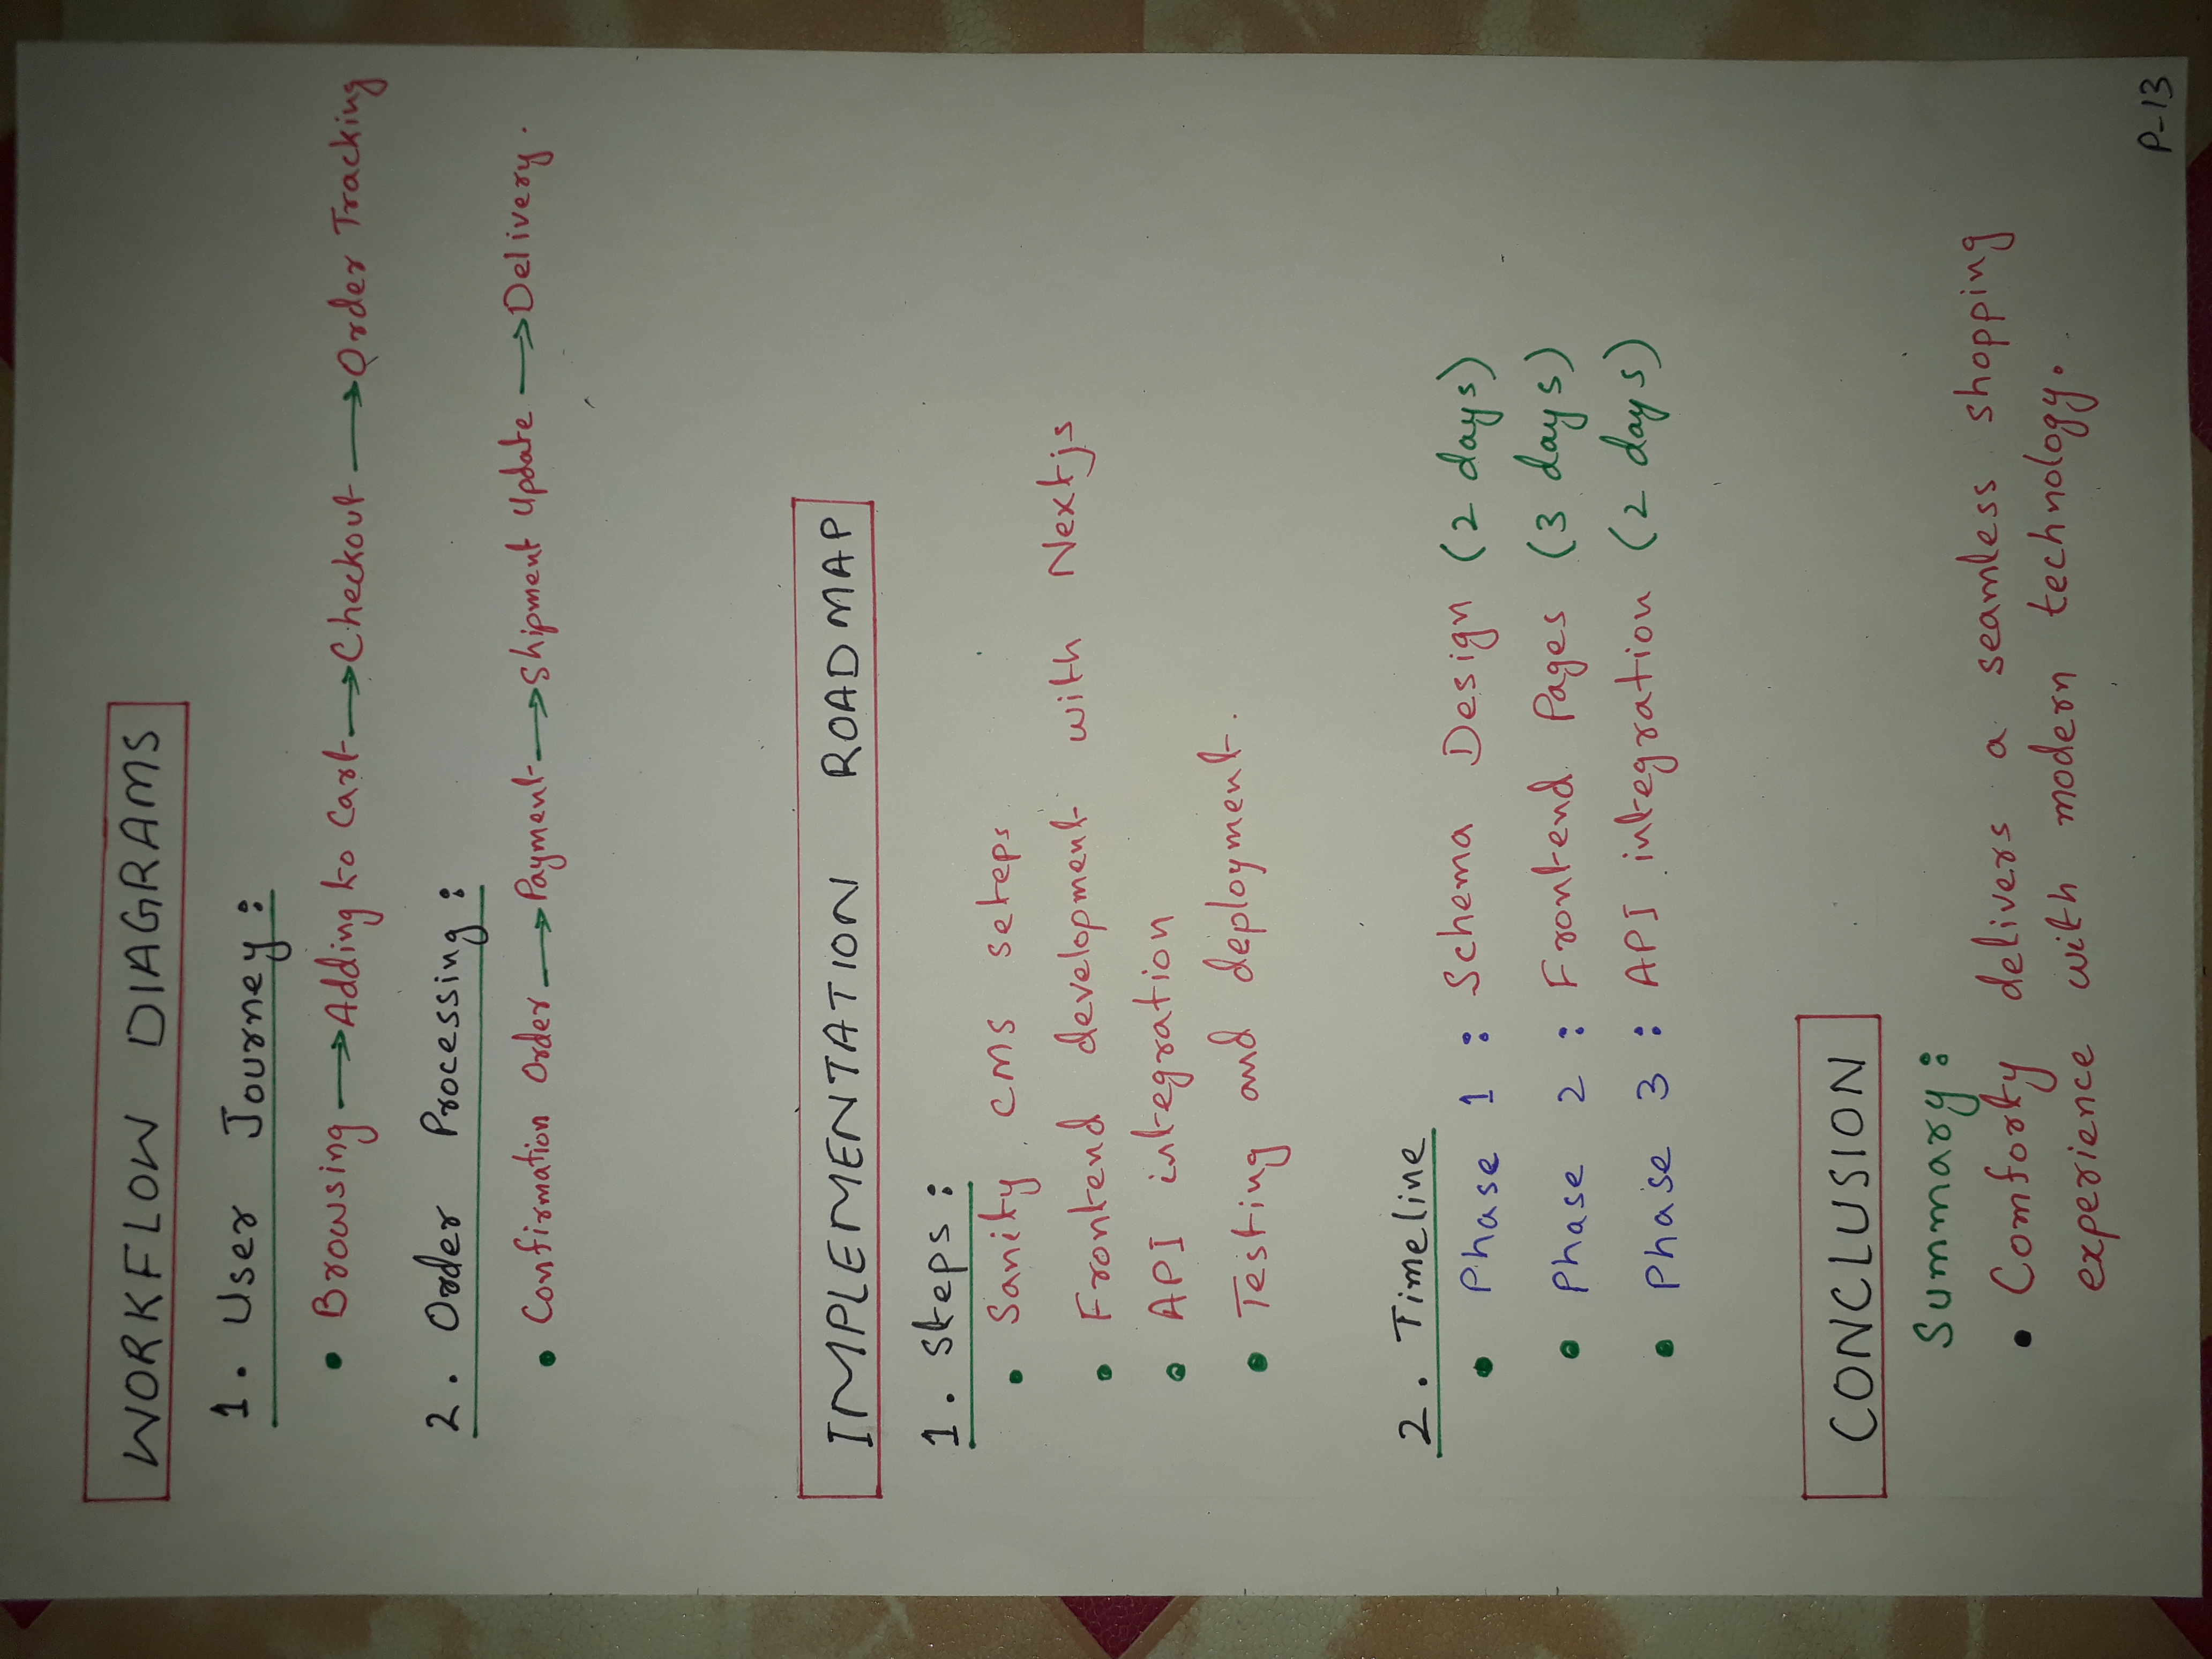 WORKFLOW DIAGRAMS
1. User Journey:
• Browsing → Adding to Cart → Checkout → Order Tracking
2. Order Processing:
• Confirmation Order → Payment → Shipment Update → Delivery.
IMPLEMENTATION ROADMAP
1. Steps:
• Sanity CMS seteps
• Frontend development with Nextjs
• API integration
• Testing and deployment.
2. Timeline
• Phase 1 : Schema Design (2 days)
• Phase 2 : Frontend Pages (3 days)
• Phase 3 : API integration (2 days)
CONCLUSION
Summary:
• Comforty delivers a seamless shopping
experience with modern technology.
P-13